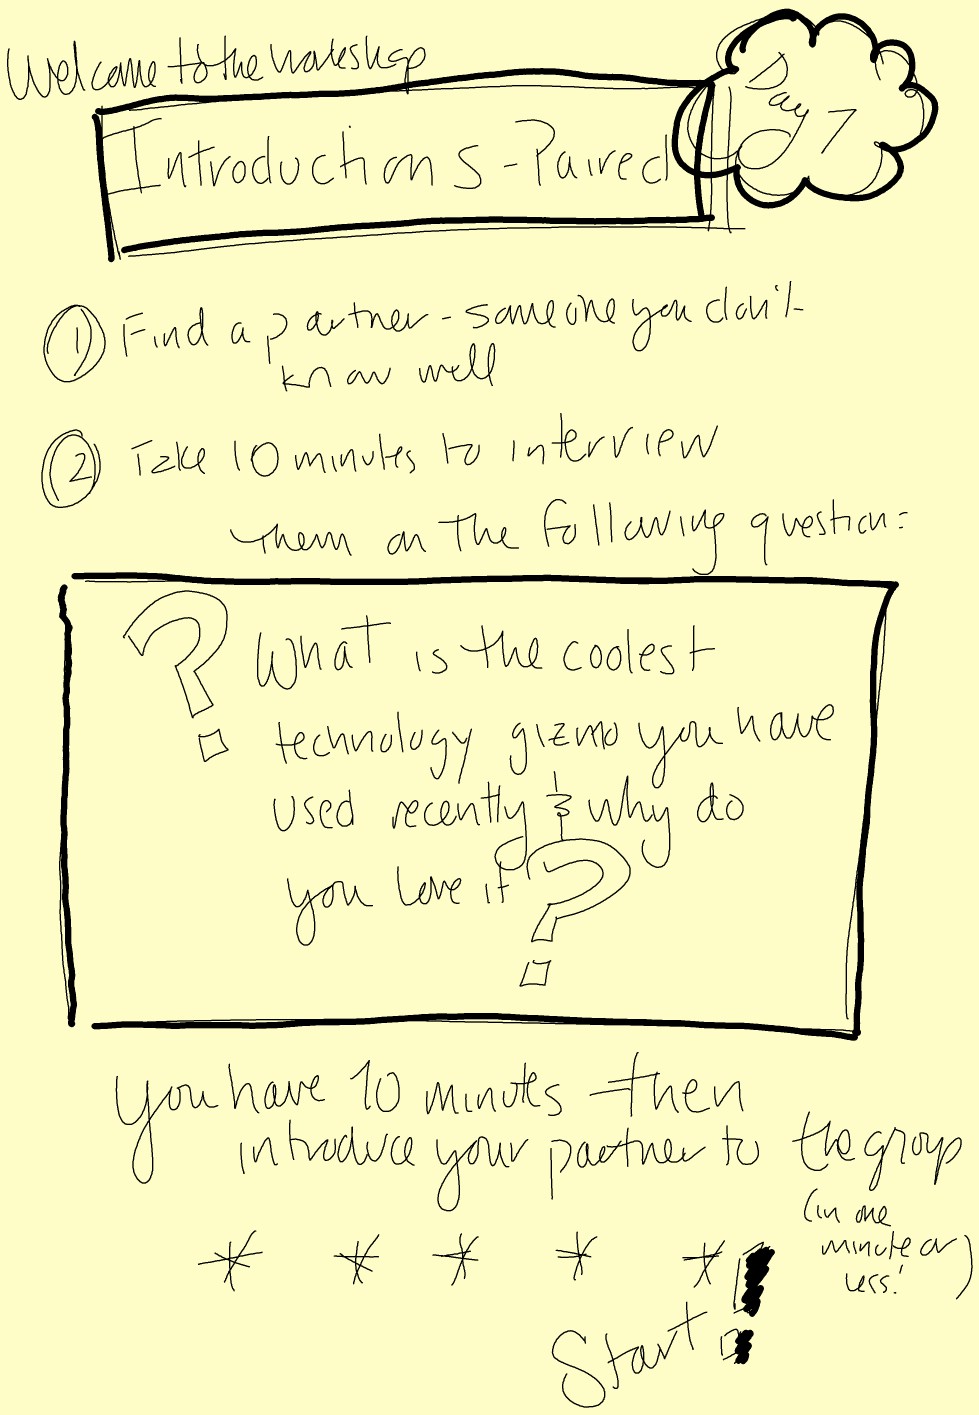 Welcome to the workshop
Day 7
Introductions - Paired
1 Find a partner - someone you don't
know well
2 Take 10 minutes to interview
them on the following question:
? What is the coolest
technology gizmo you have
used recently & why do
you love it?
You have 10 minutes - then
introduce your partner to the group
(in one
minute or
less!)
* * * * *
Start!